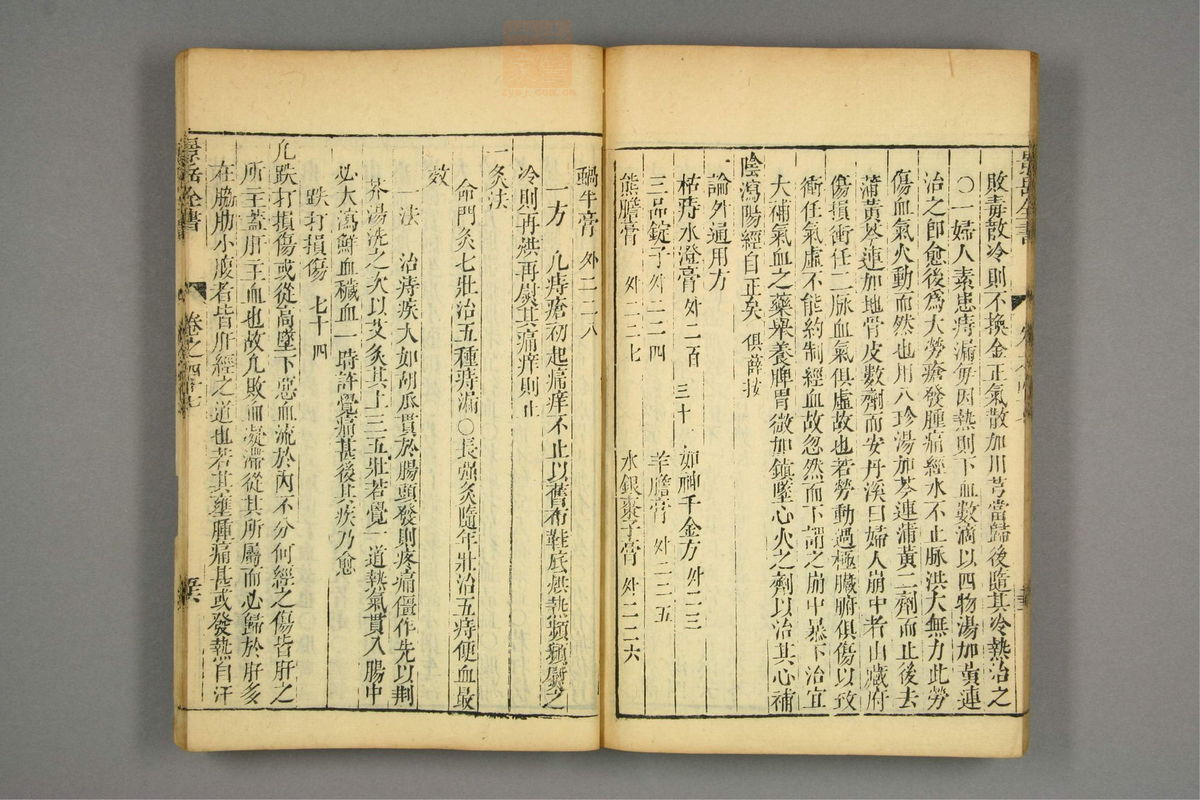 敗毒散冷則不換金正氣散加川芎當歸後隨其冷熱治之
〇一婦人素患痔漏每因熱則下血數滴以四物湯加黃連
治之即愈後為大勞瘡發腫痛經水不止脉洪大無力此勞
傷血氣火動而然也用八珍湯加芩連蒲黃二劑而止後去
蒲黃芩連加地骨皮數劑而安丹溪曰婦人崩中者由臟府
傷損衝任二脉血氣俱虛故也若勞動過極臟腑俱傷以致
衝任氣虛不能約制經血故忽然而下謂之崩中暴下治宜
大補氣血之藥舉養脾胃微加鎮墜心火之劑以治其心補
陰瀉陽經自正矣 俱薛按
論外通用方
枯痔水澄膏 外二百三十一 如神千金方 外二二三
三品錠子 外二二四 羊膽膏 外二二五
熊膽膏 外二二七 水銀棗子膏 外二二六
蝸牛膏 外二二八
一方 凡痔瘡初起痛痒不止以舊布鞋底烘熱頻頻熨之
冷則再烘再熨其痛痒則止
一灸法
命門灸七壯治五種痔漏〇長强灸隨年壯治五痔便血最
效
一法 治痔疾大如胡瓜貫於腸頭發則疼痛僵仆先以荆
芥湯洗之次以艾灸其上三五壯若覺一道熱氣貫入腸中
必大瀉鮮血穢血一時許覺痛甚後其疾乃愈
跌打損傷 七十四
凡跌打損傷或從高墜下惡血流於內不分何經之傷皆肝之
所主蓋肝主血也故凡敗血凝滯從其所屬而必歸於肝多
在脇肋小腹者皆肝經之道也若其壅腫痛甚或發熱自汗
景岳全書
卷之四十七